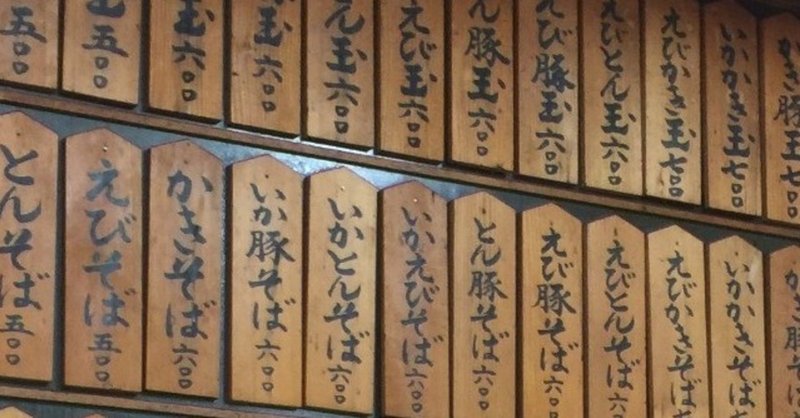 五〇〇
玉五〇〇
玉六〇〇
玉六〇〇
ん玉六〇〇
えび玉六〇〇
ん豚玉六〇〇
えび豚玉六〇〇
えびとん玉六〇〇
えびかき玉七〇〇
いかかき玉七〇〇
かき豚玉七〇〇
とんそば五〇〇
えびそば五〇〇
かきそば六〇〇
いか豚そば六〇〇
いかとんそば六〇〇
いかえびそば六〇〇
とん豚そば六〇〇
えび豚そば六〇〇
えびとんそば六〇
えびかきそば
いかかきそば
かき豚そ